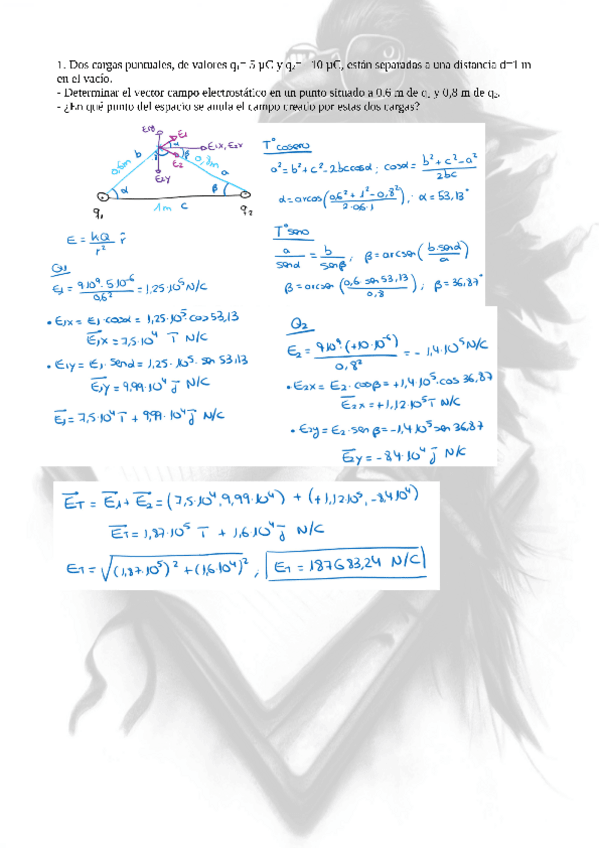 1. Dos cargas puntuales, de valores q₁= 5 µC y q₂= - 10 µC, están separadas a una distancia d=1 m
en el vacío.
- Determinar el vector campo electrostático en un punto situado a 0.6 m de q₁ y 0,8 m de q₂.
- ¿En qué punto del espacio se anula el campo creado por estas dos cargas?
E₁y E₁
α E₁x, E₂x
β
E₂
E₂y
0,6m b 0,8m a
α β
q₁ 1m c q₂
Tº coseno
a²=b²+c²-2bccosα; cosα= (b²+c²-a²)/2bc
α=arcos((0,6²+1²-0,8²)/2·0,6·1); α=53,13°
Tº seno
a/senα = b/senβ; β=arcsen(b·senα/a)
β=arcsen(0,6·sen53,13/0,8); β=36,87°
E = kQ/r² r̂
Q1
E₁= 9·10⁹·5·10⁻⁶/0,6² = 1,25·10⁵ N/C
• E₁x = E₁·cosα = 1,25·10⁵ cos 53,13
E₁x = 7,5·10⁴ i N/C
• E₁y = E₁·senα = 1,25·10⁵·sen 53,13
E₁y = 9,99·10⁴ j N/C
E₁ = 7,5·10⁴ i + 9,99·10⁴ j N/C
Q2
E₂ = 9·10⁹·(+10·10⁻⁶)/0,8² = -1,4·10⁵ N/C
• E₂x = E₂·cosβ = +1,4·10⁵·cos 36,87
E₂x = +1,12·10⁵ i N/C
• E₂y = E₂·senβ = -1,4·10⁵ sen 36,87
E₂y = -8,4·10⁴ j N/C
ET = E₁ + E₂ = (7,5·10⁴, 9,99·10⁴) + (+1,12·10⁵, -8,4·10⁴)
ET = 1,87·10⁵ i + 1,6·10⁴ j N/C
ET = √(1,87·10⁵)² + (1,6·10⁴)²; ET = 187683,24 N/C